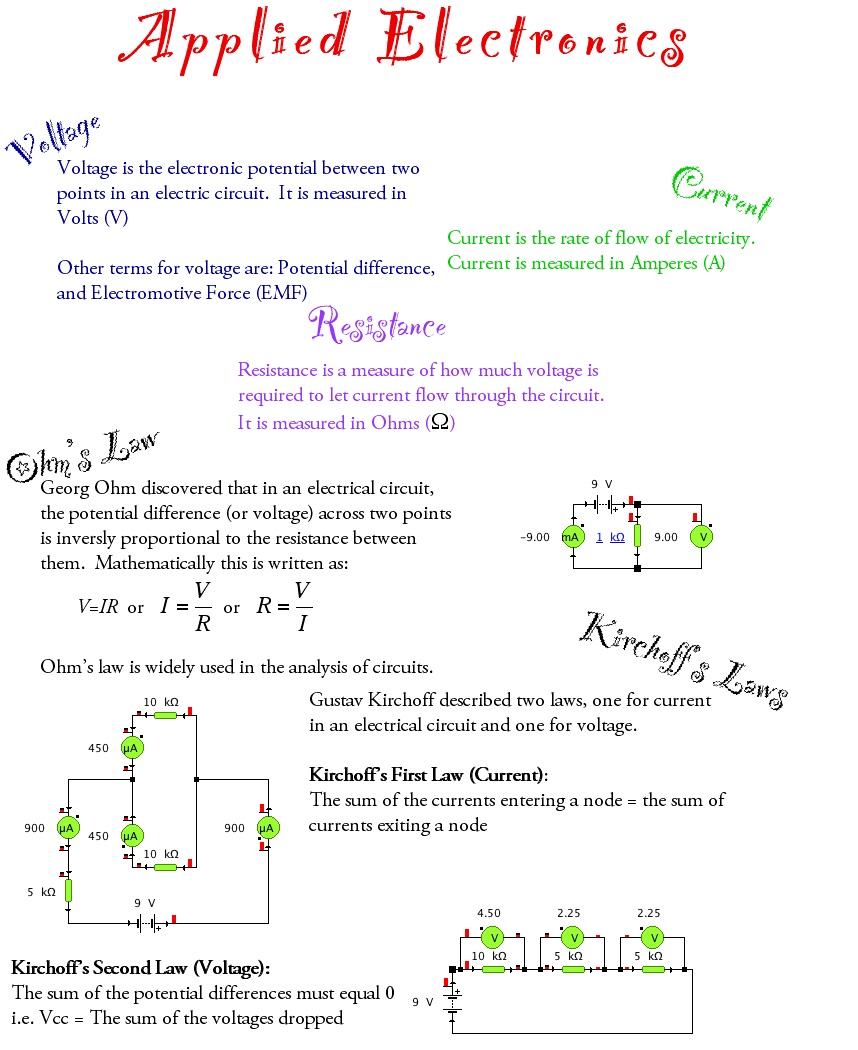 Applied Electronics
Voltage
Voltage is the electronic potential between two
points in an electric circuit.  It is measured in
Volts (V)
Other terms for voltage are: Potential difference,
and Electromotive Force (EMF)
Current
Current is the rate of flow of electricity.
Current is measured in Amperes (A)
Resistance
Resistance is a measure of how much voltage is
required to let current flow through the circuit.
It is measured in Ohms (Ω)
Ohm's Law
Georg Ohm discovered that in an electrical circuit,
the potential difference (or voltage) across two points
is inversly proportional to the resistance between
them.  Mathematically this is written as:
V=IR or I = V/R or R = V/I
Ohm's law is widely used in the analysis of circuits.
9 V
-9.00 mA 1 kΩ 9.00 V
Kirchoff's Laws
Gustav Kirchoff described two laws, one for current
in an electrical circuit and one for voltage.
Kirchoff's First Law (Current):
The sum of the currents entering a node = the sum of
currents exiting a node
10 kΩ
450 µA
900 µA
450 µA
900 µA
10 kΩ
5 kΩ
9 V
Kirchoff's Second Law (Voltage):
The sum of the potential differences must equal 0
i.e. Vcc = The sum of the voltages dropped
4.50 2.25 2.25
V V V
10 kΩ 5 kΩ 5 kΩ
9 V